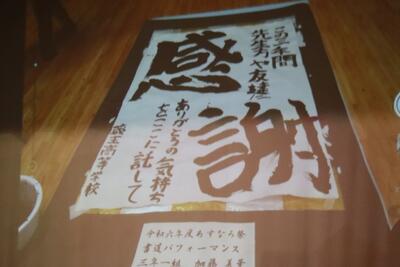 この三年間
先生方や友達に
感謝
ありがとうの気持ち
をここに託して
蔵王高等学校
令和六年度あすなろ祭
書道パフォーマンス
三年一組 加藤美